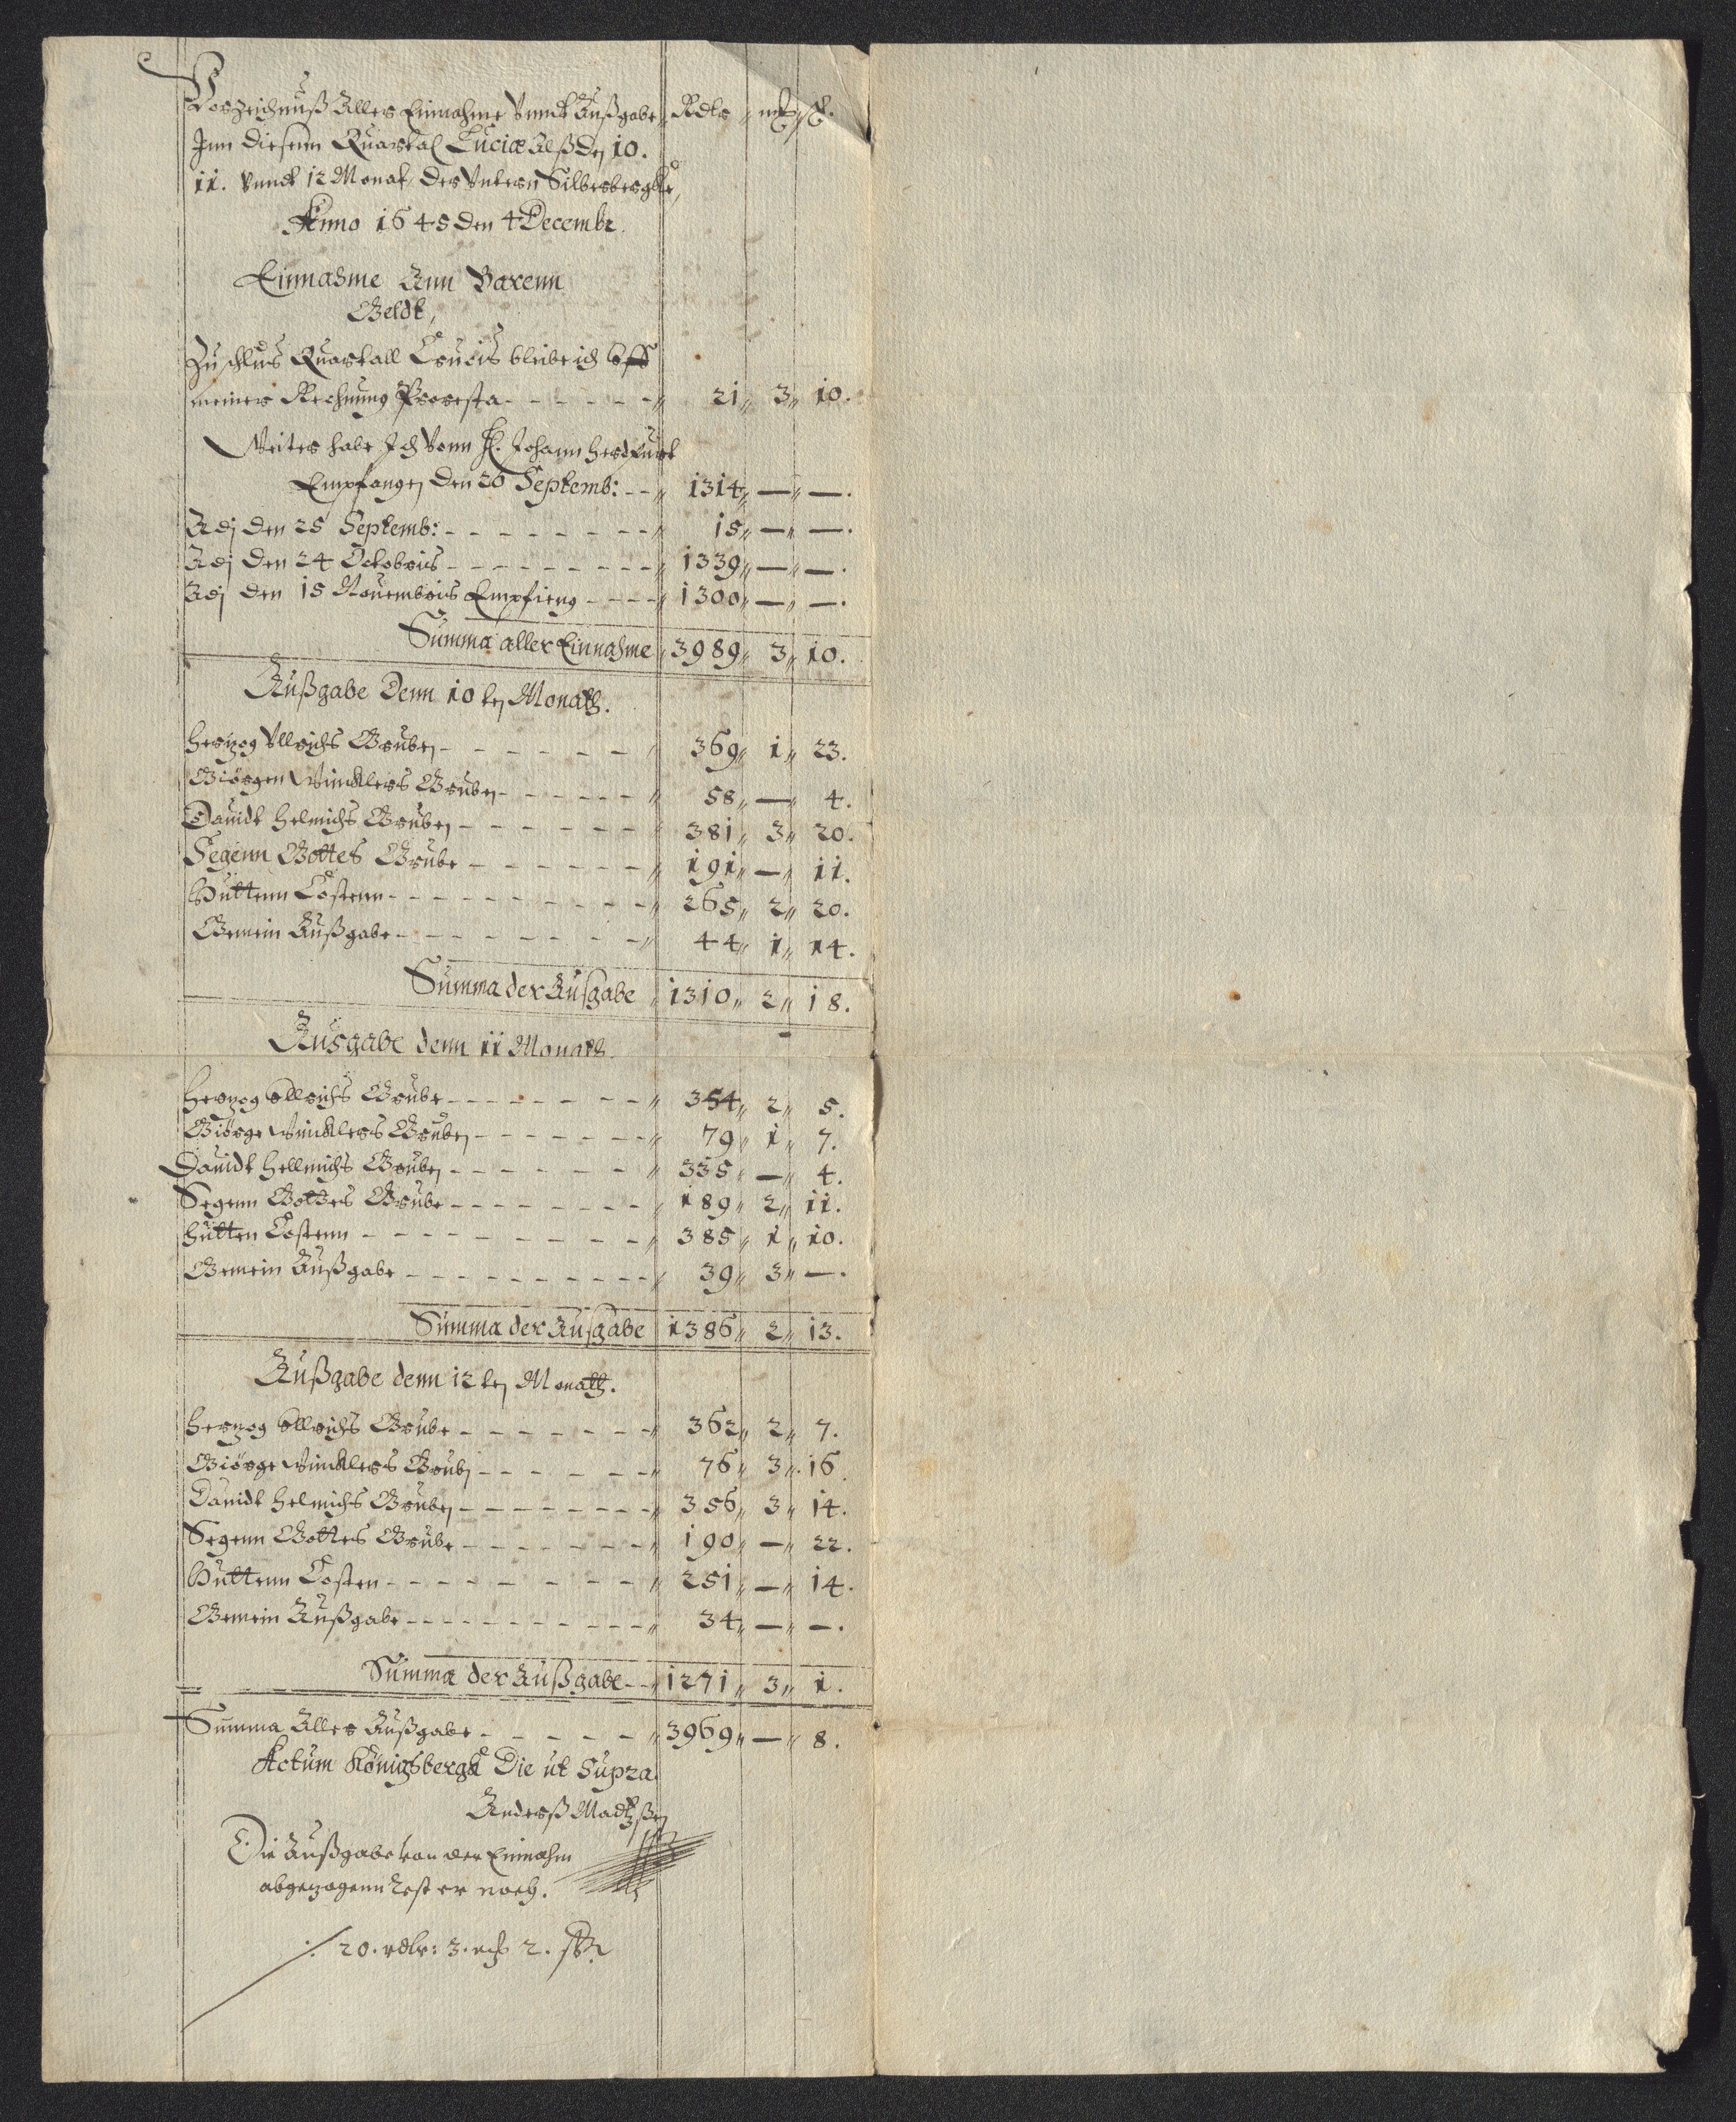 Vorzeichnuß Aller Einnahme Vnndt Außgabe Rdlr mk ß.
Inn diesenn Quartal Luciæ alß den 10.
11. Vnndt 12 Monat, der Vntern Silberbergke,
Anno 1645 den 4 Decembr.
Einnahme Ann Barenn
Geldt,
Zu schlus Quartall Crucis bleibe ich vff
meiner Rechnung Proresta - - - - - - 21 3 10.
Weiter habe Ich Vonn H. Johann
Empfangen den 20 Septemb: - - 1314 — —.
Adj den 25 Septemb: - - - - - - - - 15 — —.
Adj den 24 Octobris - - - - - - - - - 1339 — —.
Adj den 15 Nouembris Empfieng - - - - 1300 — —.
Summa aller Einnahme 3989 3 10.
Außgabe Denn 10 ten Monath.
Hertzog Vllrichs Gruben - - - - - - - 369 1 23.
Giörgen Wincklers Gruben - - - - - - 58 — 4.
Dauidt Helmichs Gruben - - - - - - 381 3 20.
Segenn Gottes Grube - - - - - - - 191 — 11.
Huttenn Costenn - - - - - - - - - - 265 2 20.
Gemein Außgabe - - - - - - - - - 44 1 14.
Summa der Ausgabe 1310 2 18.
Ausgabe denn 11 Monath.
Hertzog Vllrichs Grube - - - - - - - - 354 2 5.
Giörge Wincklers Gruben - - - - - - - 79 1 7.
Dauidt Hellmichs Gruben - - - - - - 335 — 4.
Segenn Gottes Grube - - - - - - - - 189 2 11.
Hütten Costenn - - - - - - - - - - 385 1 10.
Gemein Außgabe - - - - - - - - - - 39 3 —.
Summa der Ausgabe 1386 2 13.
Außgabe denn 12 ten Monath.
Hertzog Vllrichs Grube - - - - - - - - 362 2 7.
Giörge Wincklers Gruben - - - - - - 76 3 16
Dauidt Helmichs Gruben - - - - - - - - 356 3 14.
Segenn Gottes Grube - - - - - - - 190 — 22.
Huttenn Costen - - - - - - - - - 251 — 14.
Gemein Außgabe - - - - - - - - - - - 34 — —.
Summa der Außgabe - - 1271 3 1.
Summa Aller Außgabe - - - - - - 3969 — 8.
Actum Königsbergk Die ut Supra
Anderß Madtzßen
Die Außgabe von der Einnahm
abgezogenn rest er noch.
./. 20. rdlr: 3. 2. ß